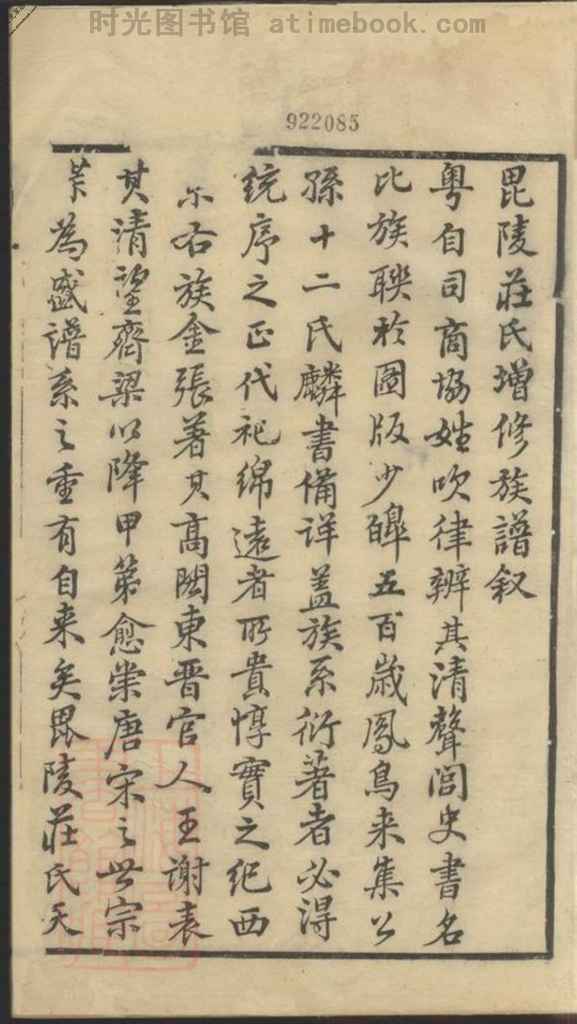 时光图书馆 atimebook.com
922085
毘陵莊氏增修族譜叙
粤自司商協姓吹律辨其清聲閭史書名
比族聮於圖版少皥五百歲鳳鳥来集公
孫十二氏麟書備詳盖族系衍著者必淂
統序之正代祀綿遠者所貴惇實之紀西
京右族金張著其高閥東晋官人王謝表
其清望齊梁以降甲第愈崇唐宋之世宗
業為盛譜系之重有自来矣毘陵莊氏天